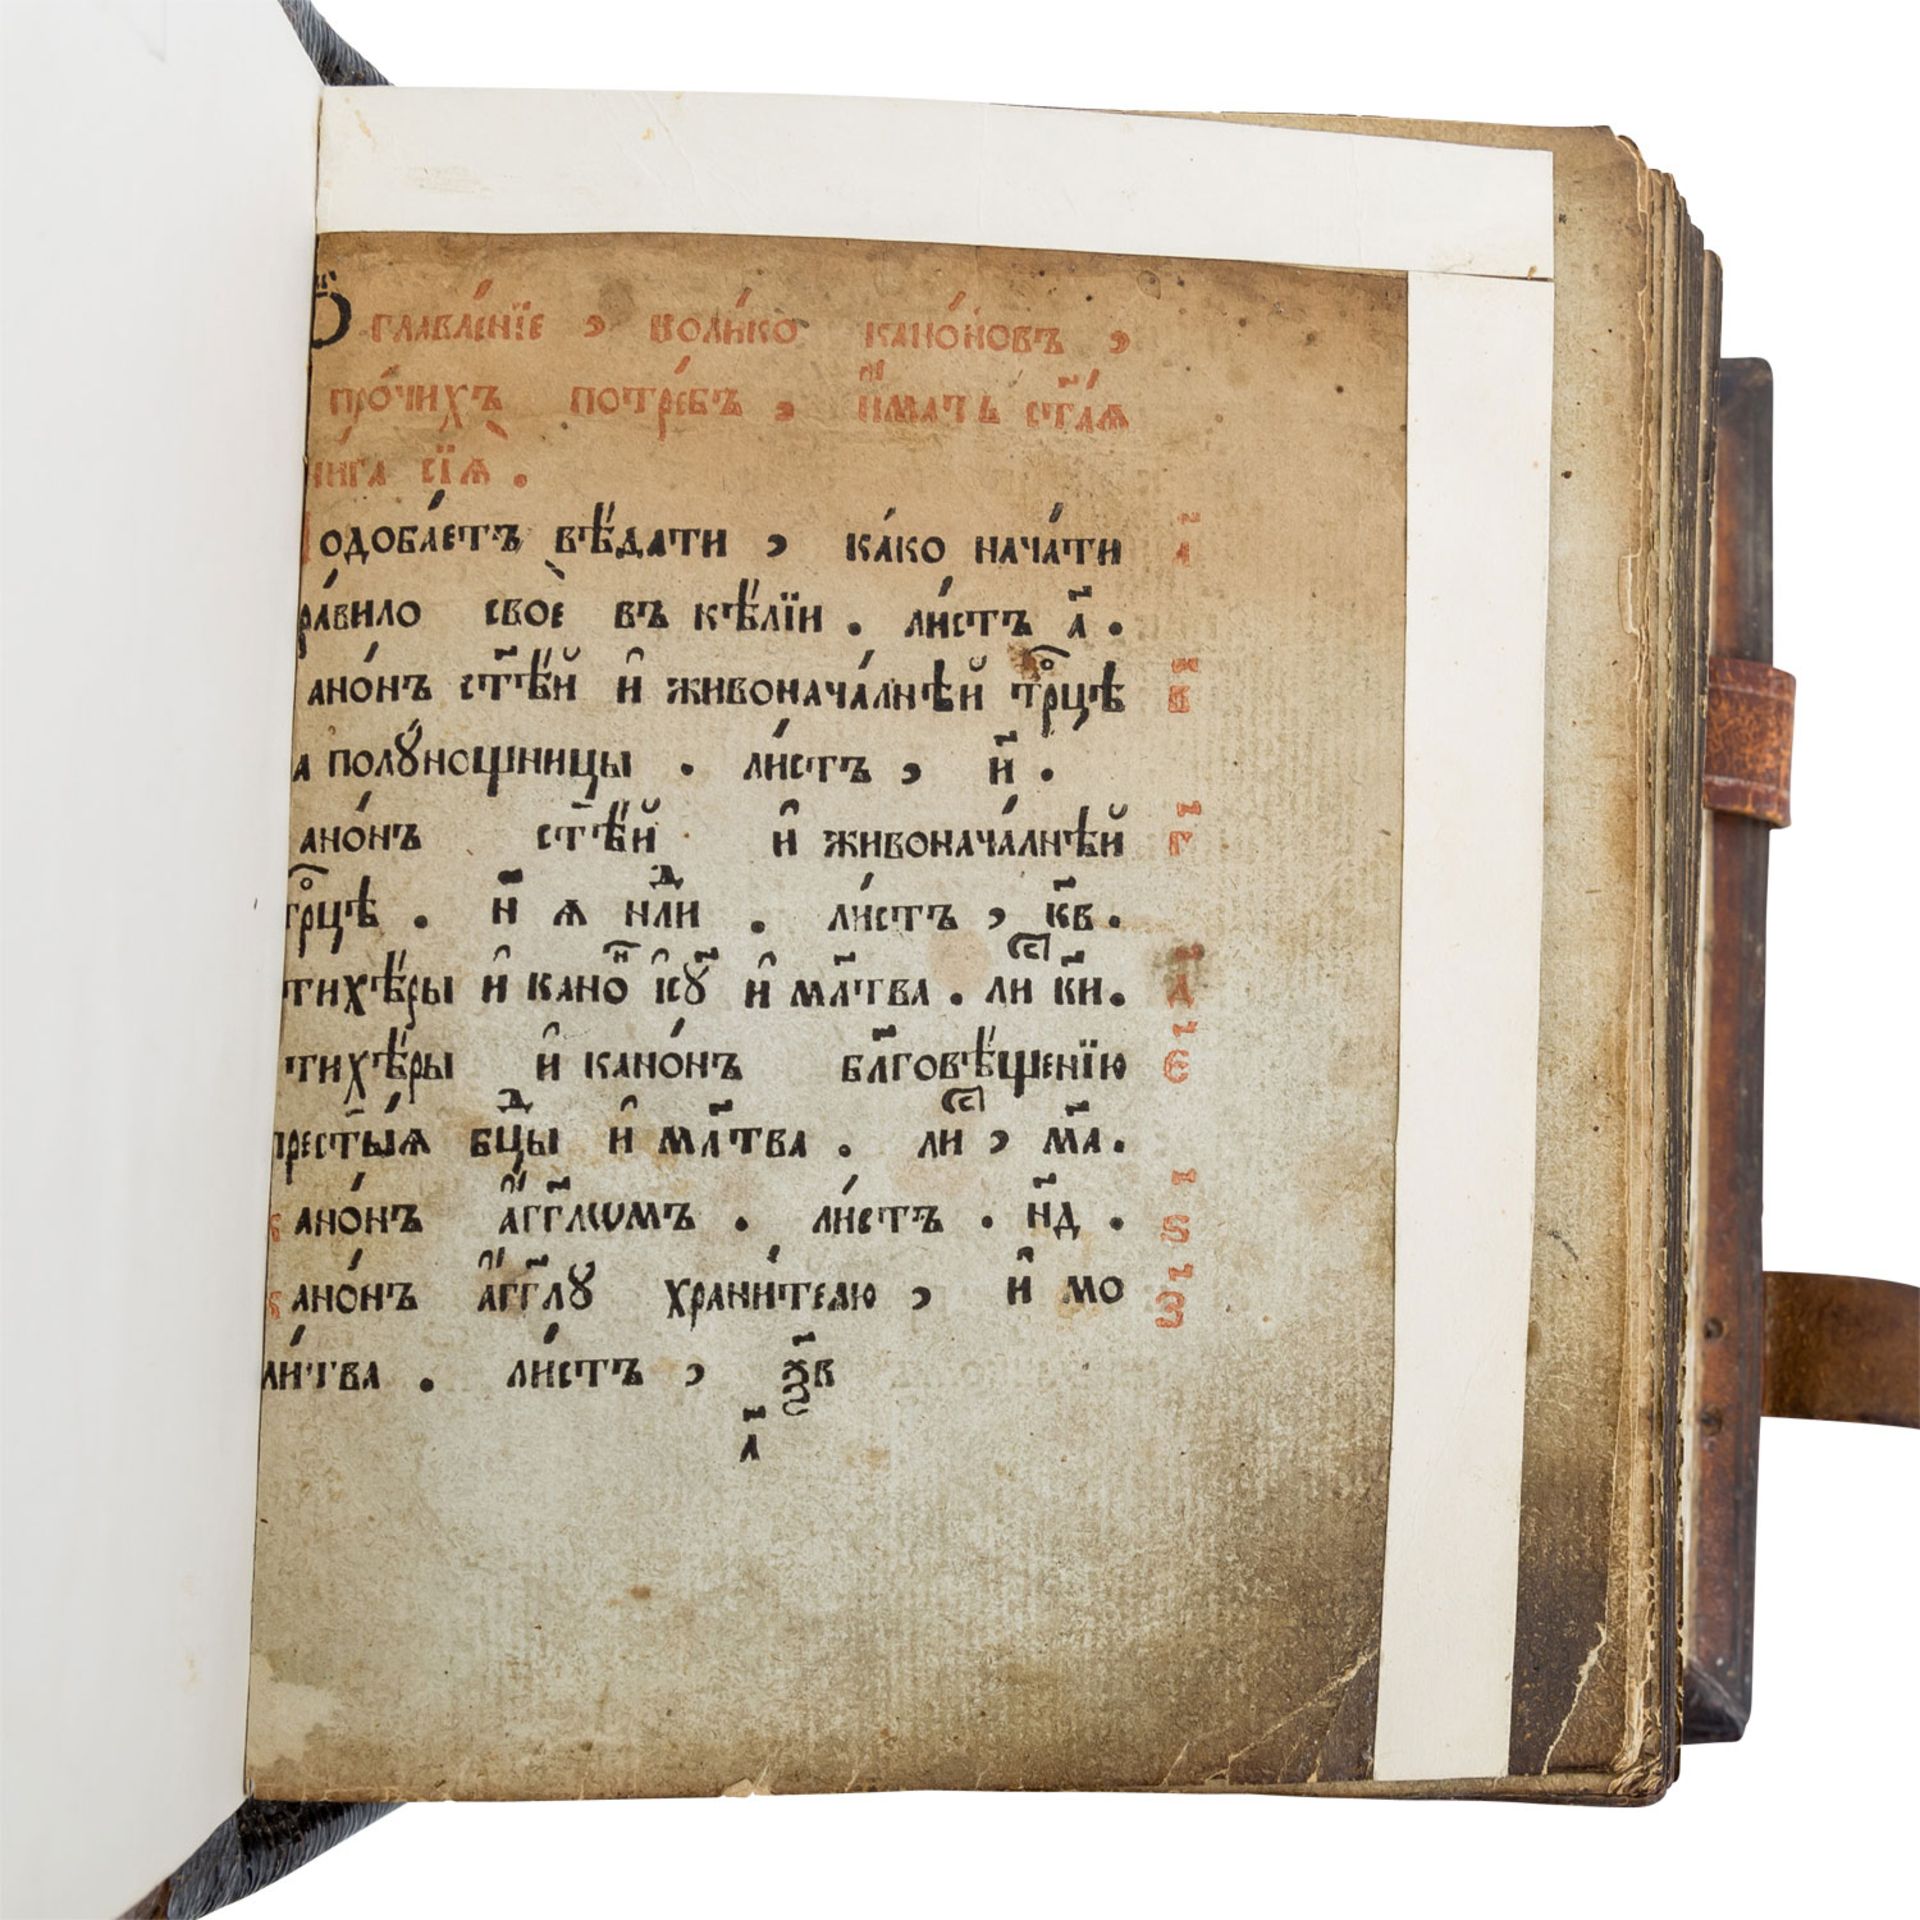 Ѻ҆главле́нїе , коли́ко кано́новъ ,
про́чихъ потре́бъ , и҆́мать ст҃а́ѧ
нига сїѧ̀ .
одоба́етъ вѣ́дати , ка́ко нача́ти а҃
ра́вило своѐ въ кѣ́лїи . ли́стъ а҃ .
ано́нъ ст҃ѣ́й и҆ живонача́лнѣй трⷪ҇цѣ в҃
а полꙋ́нощницы . ли́стъ , и҃ .
ано́нъ ст҃ѣ́й и҆ живонача́лнѣй г҃
трⷪ҇цѣ . н҃ ѧ нлⷣи . ли́стъ , к҃в .
тихѣ́ры и҆ каноⷩ҇ і҆с҃ꙋ и҆ мл҃тва . лиⷭ҇ к҃и . д҃
тихѣ́ры и҆ кано́нъ бл҃говѣ́щенїю є҃
прест҃ы́ѧ бцⷣы и҆ мл҃тва . лиⷭ҇ , м҃а .
кано́нъ а҆́гг҃лѡмъ . ли́стъ . н҃д . ѕ҃
кано́нъ а҆́гг҃лꙋ храни́телю , и҆ мо з҃
ли́тва . ли́стъ , ѯ҃в
а҃